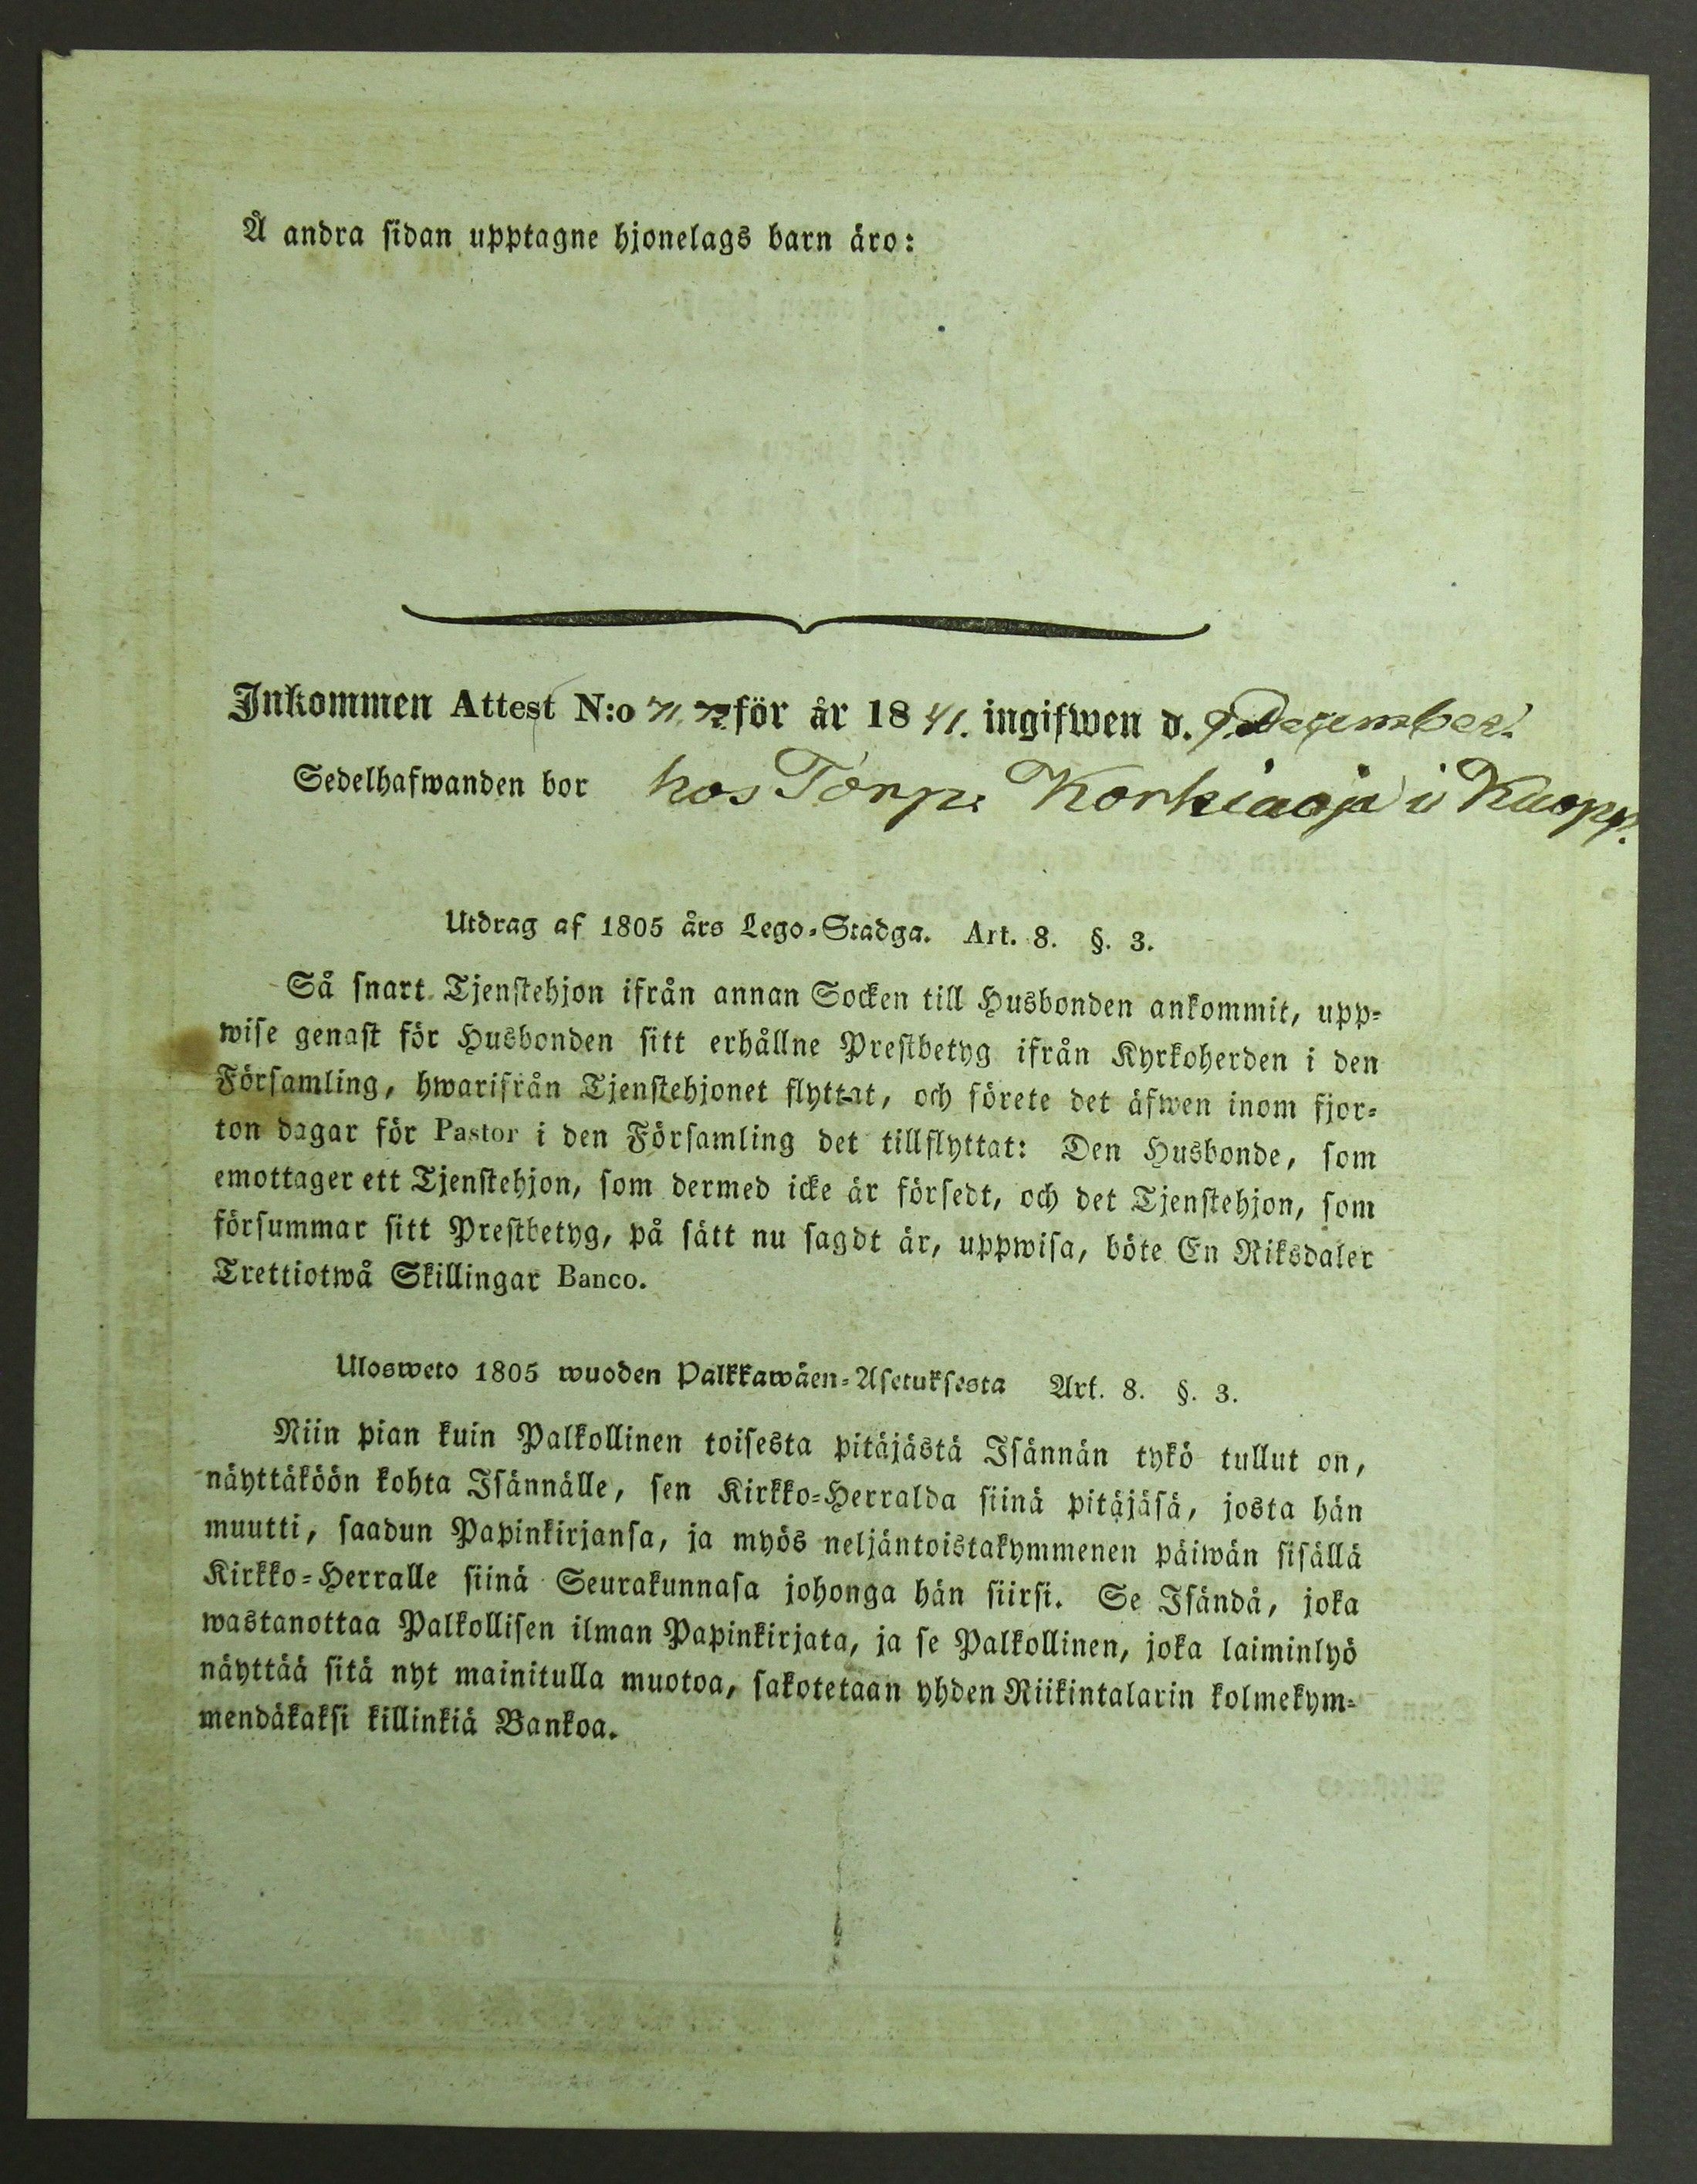 Å andra sidan upptagne hjonelags barn äro:
Inkommen Attest N:o 71. 72 för år 1841. ingifwen d. 9. December.
Sedelhafwanden bor hos Torp. Korkiaoja i Kuopp.
Utdrag af 1805 års Lego-Stadga. Art. 8. §. 3.
Så snart Tjenstehjon ifrån annan Socken till Husbonden ankommit, upp-
wise genast för Husbonden sitt erhållne Prestbetyg ifrån Kyrkoherden i den
Församling, hwarifrån Tjenstehjonet flyttat, och förete det äfwen inom fjor-
ton dagar för Pastor i den Församling det tillflyttat: Den Husbonde, som
emottager ett Tjenstehjon, som dermed icke är försedt, och det Tjenstehjon, som
försummar sitt Prestbetyg, på sätt nu sagdt är, uppwisa, böte En Riksdaler
Trettiotwå Skillingar Banco.
Ulosweto 1805 wuoden Palkkawäen-Asetuksesta Art. 8. §. 3.
Niin pian kuin Palkollinen toisesta pitäjästä Isännän tykö tullut on,
näyttäköön kohta Isännälle, sen Kirkko-Herralda siinä pitäjäsä, josta hän
muutti, saadun Papinkirjansa, ja myös neljäntoistakymmenen päiwän sisällä
Kirkko-Herralle siinä Seurakunnasa johonga hän siirsi. Se Isändä, joka
wastanottaa Palkollisen ilman Papinkirjata, ja se Palkollinen, joka laiminlyö
näyttää sitä nyt mainitulla muotoa, sakotetaan yhden Riikintalarin kolmekym-
mendäkaksi killinkiä Bankoa.